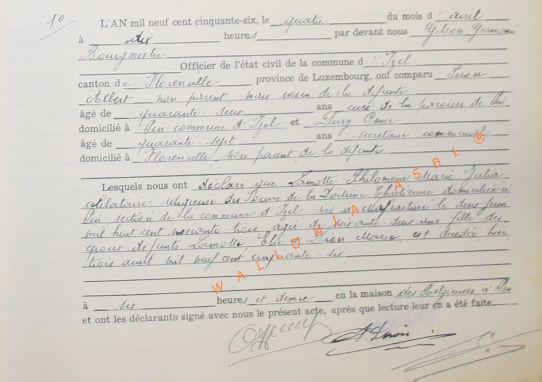 10
L'AN mil neuf cent cinquante-six, le quatre du mois d'avril
à dix heures par devant nous
Bourgmestre
Officier de l'état civil de la commune d'Izel
canton de Florenville province de Luxembourg, ont comparu
Albert non parent, mais voisin de la défunte
âgé de quarante-deux ans curé de la paroisse de Pin
domicilié à Pin commune d'Izel et Omer
âgé de quarante-sept ans secrétaire communal
domicilié à Florenville, non parent de la défunte
Lesquels nous ont déclaré que Lamotte Philomène Marie Julia
célibataire religieuse des Soeurs de la Doctrine Chrétienne domiciliée à
Pin section de la commune d'Izel, née à le deux juin
mil huit cent nonante trois, âgée de soixante deux ans fille des
époux défunts Lamotte, et Marie, est décédée hier
trois avril mil neuf cent cinquante-six
à six heures et demie en la maison des Religieuses à Pin
et ont les déclarants signé avec nous le présent acte, après que lecture leur en a été faite.
WALLONIA ASBL ®